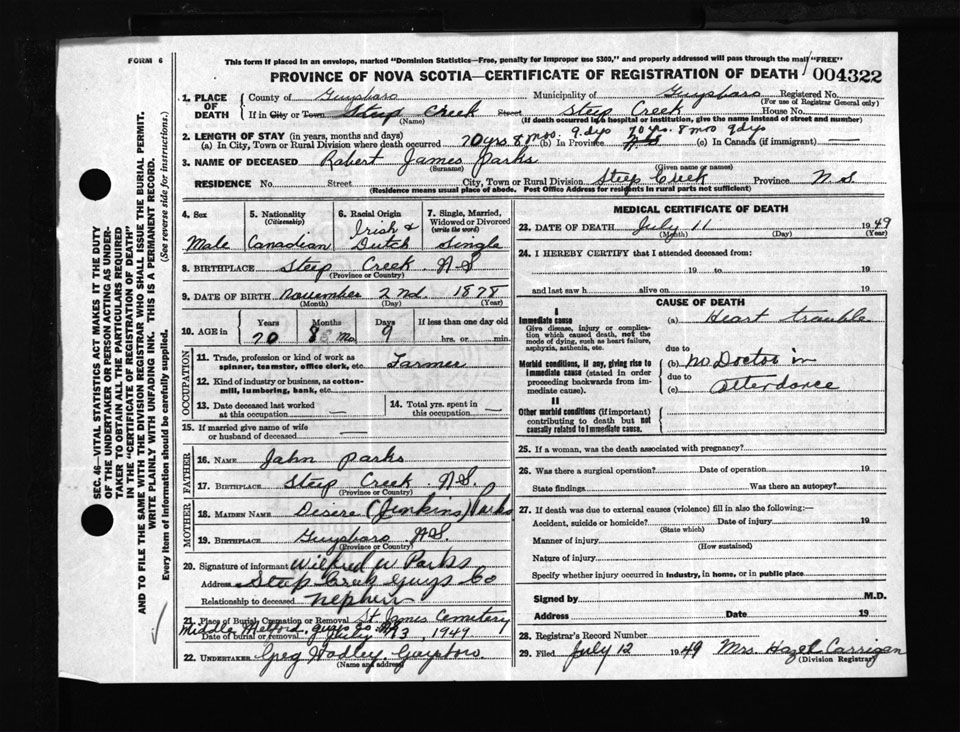 FORM 6
This form if placed in an envelope, marked "Dominion Statistics—Free, penalty for improper use $300," and properly addressed will pass through the mail "FREE"
PROVINCE OF NOVA SCOTIA—CERTIFICATE OF REGISTRATION OF DEATH 004322
SEC. 46—VITAL STATISTICS ACT MAKES IT THE DUTY
OF THE UNDERTAKER OR PERSON ACTING AS UNDER-
TAKER TO OBTAIN ALL THE PARTICULARS REQUIRED
IN THE "CERTIFICATE OF REGISTRATION OF DEATH"
AND TO FILE THE SAME WITH THE DIVISION REGISTRAR WHO SHALL ISSUE THE BURIAL PERMIT.
WRITE PLAINLY WITH UNFADING INK. THIS IS A PERMANENT RECORD.
Every item of information should be carefully supplied. (See reverse side for instructions.)
1. PLACE OF DEATH County of Guysboro Municipality of Guysboro Registered No.
(For use of Registrar General only)
If in City or Town Steep Creek Street Steep Creek House No.
(Name) (If death occurred in a hospital or institution, give the name instead of street and number)
2. LENGTH OF STAY (in years, months and days)
(a) In City, Town or Rural Division where death occurred 70 yrs. 8 mos. 9 dys (b) In Province 70 yrs. 8 mos 9 dys (c) In Canada (if immigrant) —
3. NAME OF DECEASED Robert James Parks
(Surname) (Given name or names)
RESIDENCE No. Street City, Town or Rural Division Steep Creek Province N.S.
(Residence means usual place of abode. Post Office Address for residents in rural parts not sufficient)
4. Sex Male
5. Nationality (Citizenship) Canadian
6. Racial Origin Irish & Dutch
7. Single, Married, Widowed or Divorced (write the word) Single
8. BIRTHPLACE Steep Creek N.S
(Province or Country)
9. DATE OF BIRTH November 2nd. 1878
(Month) (Day) (Year)
10. AGE in Years 70 Months 8 Mo. Days 9 If less than one day old
hrs. or min.
OCCUPATION
11. Trade, profession or kind of work as spinner, teamster, office clerk, etc. Farmer
12. Kind of industry or business, as cotton-mill, lumbering, bank, etc.
13. Date deceased last worked at this occupation —
14. Total yrs. spent in this occupation —
15. If married give name of wife or husband of deceased —
FATHER
16. NAME John Parks
17. BIRTHPLACE Steep Creek N.S.
(Province or Country)
MOTHER
18. MAIDEN NAME Desere (Jenkins) Parks
19. BIRTHPLACE Guysboro N.S.
(Province or Country)
20. Signature of informant Wilfred W Parks
Address Steep Creek Guys Co
Relationship to deceased nephew
21. Place of Burial, Cremation or Removal St. James Cemetery
Middle Melford, Guys Co. NS
Date of burial or removal July 13, 1949
22. UNDERTAKER Greg Hadley, Guysboro.
(Name and address)
MEDICAL CERTIFICATE OF DEATH
23. DATE OF DEATH July 11 1949
(Month) (Day) (Year)
24. I HEREBY CERTIFY that I attended deceased from:
19 to 19
and last saw h alive on 19
CAUSE OF DEATH
I
Immediate cause
Give disease, injury or complication which caused death, not the mode of dying, such as heart failure, asphyxia, asthenia, etc.
(a) Heart trouble
due to
Morbid conditions, if any, giving rise to immediate cause (stated in order proceeding backwards from immediate cause).
(b) no Doctor in
due to
(c) attendance
II
Other morbid conditions (if important) contributing to death but not causally related to immediate cause.
25. If a woman, was the death associated with pregnancy?
26. Was there a surgical operation? Date of operation 19
State findings Was there an autopsy?
27. If death was due to external causes (violence) fill in also the following:—
Accident, suicide or homicide? Date of injury 19
(State which)
Manner of injury
(How sustained)
Nature of injury
Specify whether injury occurred in industry, in home, or in public place
Signed by M.D.
Address Date 19
28. Registrar's Record Number
29. Filed July 12 1949 Mrs. Hazel Carrigan
(Division Registrar)